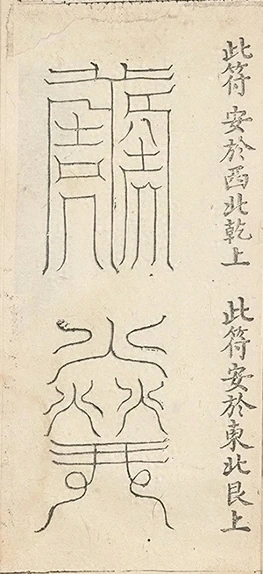 此符安於西北乾上
此符安於東北艮上